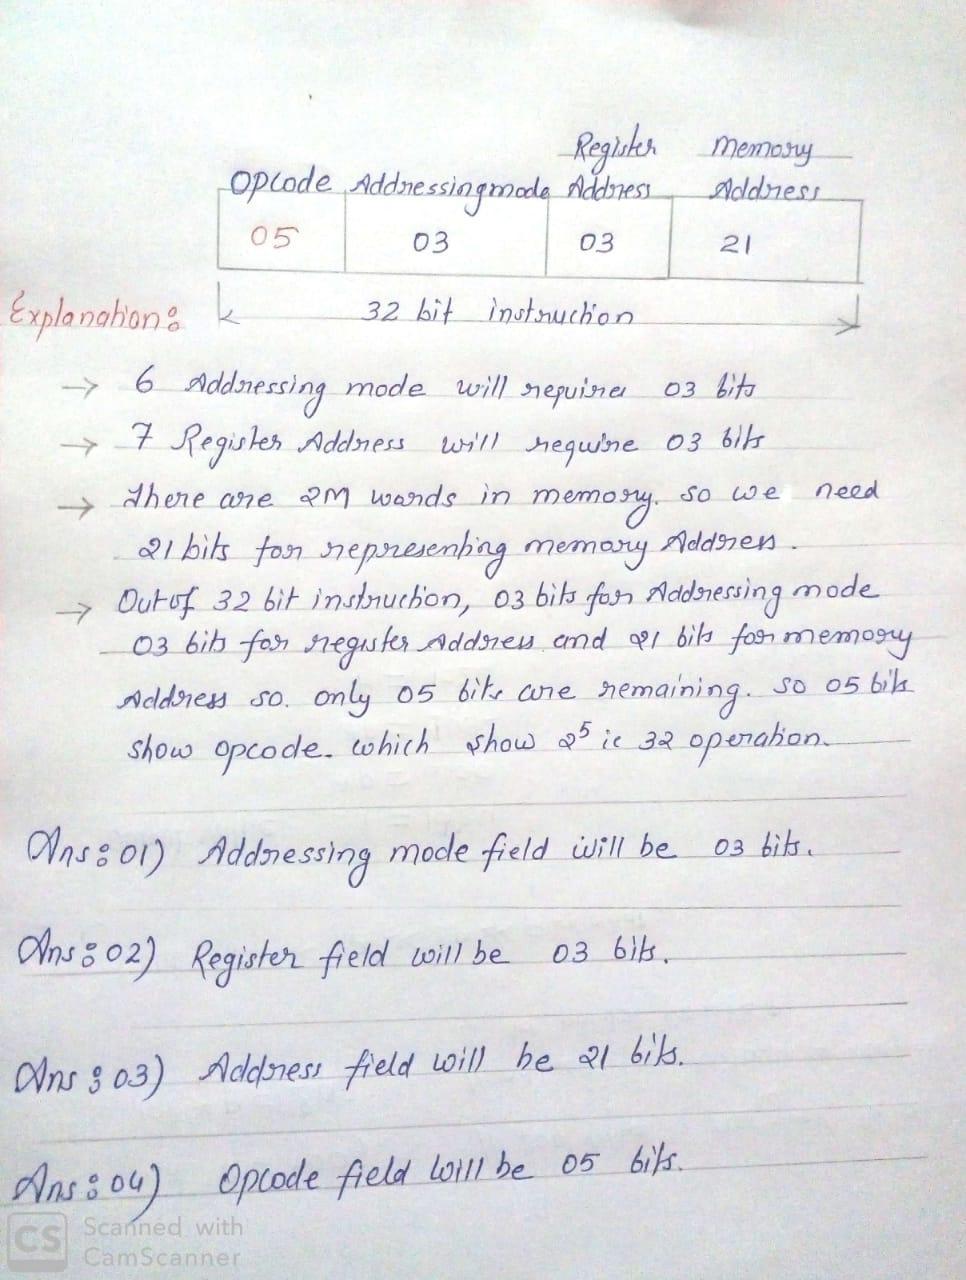 Register Memory
Opcode Addressing mode Address Address
05 03 03 21
Explanation:
32 bit instruction
→ 6 Addressing mode will requires 03 bits
→ 7 Register Address will require 03 bits
→ There are 2M words in memory. so we need
21 bits for representing memory Address.
→ Out of 32 bit instruction, 03 bits for Addressing mode
03 bits for register Address and 21 bits for memory
Address so. only 05 bits are remaining. so 05 bits
show opcode. which show 2⁵ ie 32 operation.
Ans: 01) Addressing mode field will be 03 bits.
Ans: 02) Register field will be 03 bits.
Ans: 03) Address field will be 21 bits.
Ans: 04) Opcode field will be 05 bits.
CS Scanned with
CamScanner